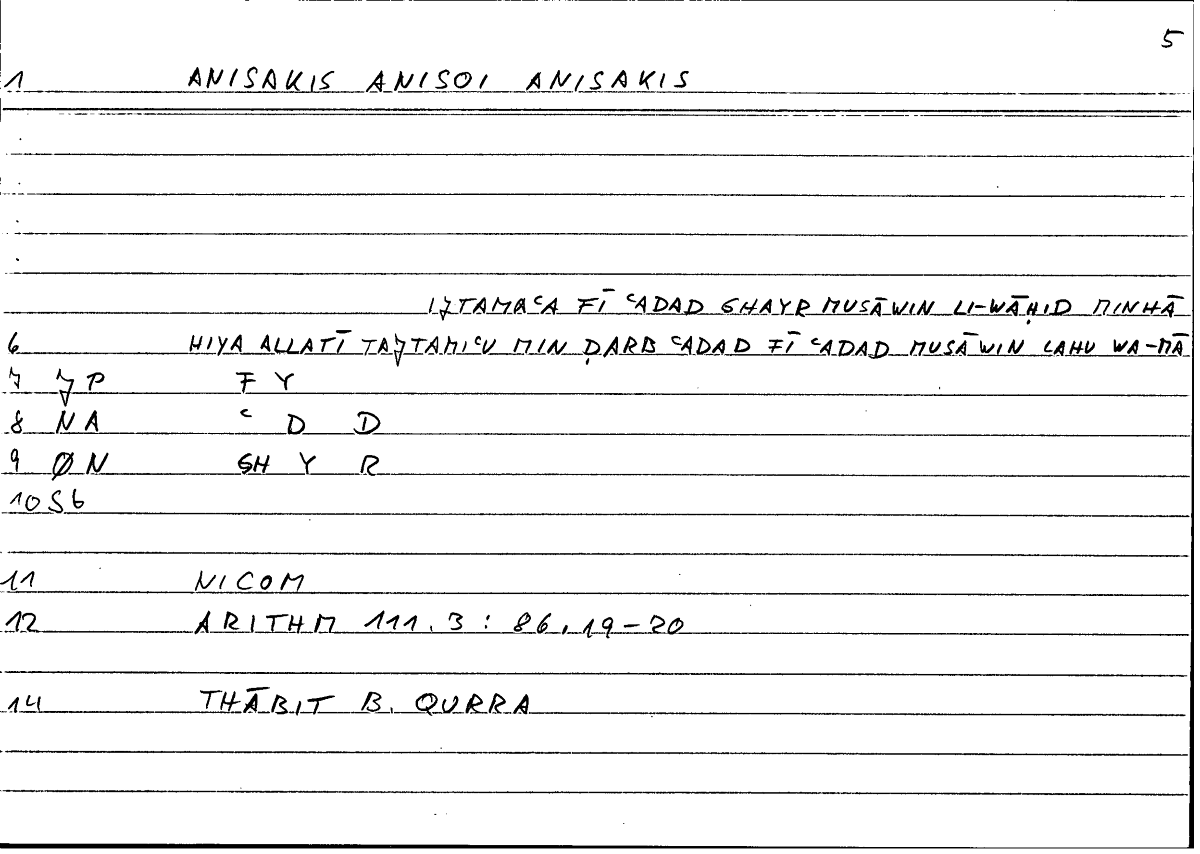 5
1 ANISAKIS ANISOI ANISAKIS
IJTAMAʿA FĪ ʿADAD GHAYR MUSĀWIN LI-WĀḤID MINHĀ
6 HIYA ALLATĪ TAJTAMIʿU MIN ḌARB ʿADAD FĪ ʿADAD MUSĀWIN LAHU WA-MĀ
7 JP F Y
8 NA ʿ D D
9 ØN GH Y R
10 S6
11 NICOM
12 ARITHM 111.3 : 86,19-20
14 THĀBIT B. QURRA